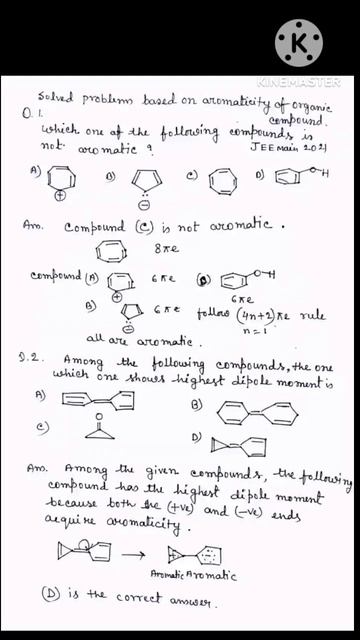 K
KINEMASTER
Solved problem based on aromaticity of organic
compound.
Q.1.
which one of the following compounds is
not aromatic ? JEE Main 2021
A) B) C) D) O-H
Ans. Compound (C) is not aromatic.
8πe
compound (A) 6πe O-H
6πe
B) 6πe follow (4n+2)πe rule
n=1
all are aromatic.
Q.2. Among the following compounds, the one
which one shows highest dipole moment is
A) B)
O
C)
D)
Ans. Among the given compounds, the following
compound has the highest dipole moment
because both the (+ve) and (-ve) ends
acquire aromaticity.
→
Aromatic Aromatic
(D) is the correct answer.